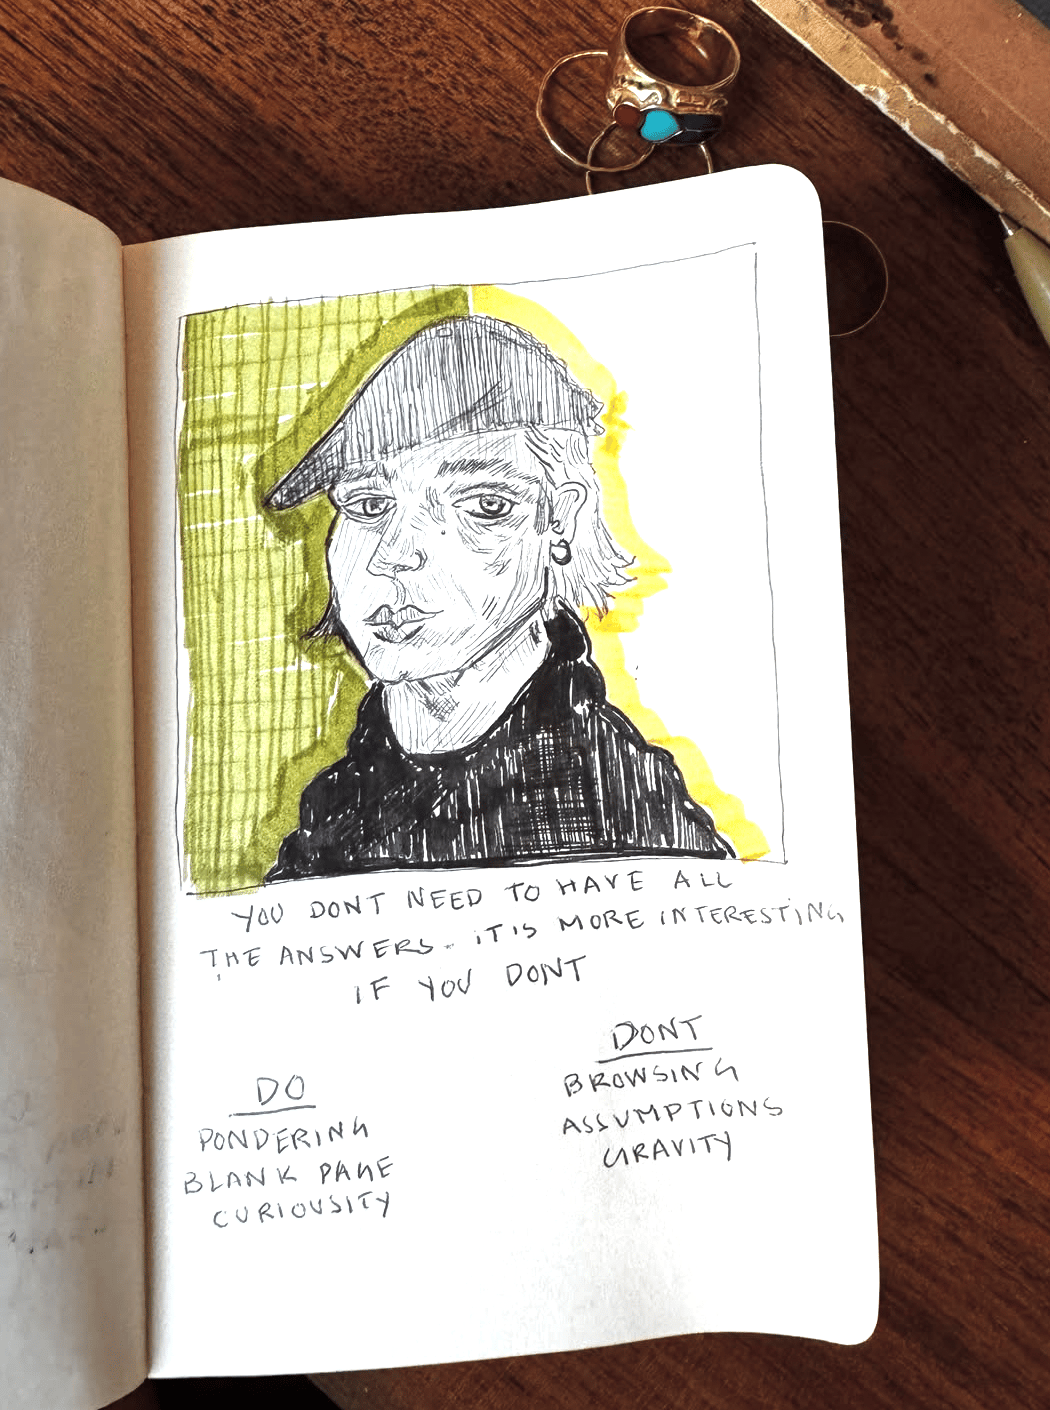 YOU DONT NEED TO HAVE ALL
THE ANSWERS. IT'S MORE INTERESTING
IF YOU DONT
DO
PONDERING
BLANK PAGE
CURIOUSITY
DONT
BROWSING
ASSUMPTIONS
GRAVITY